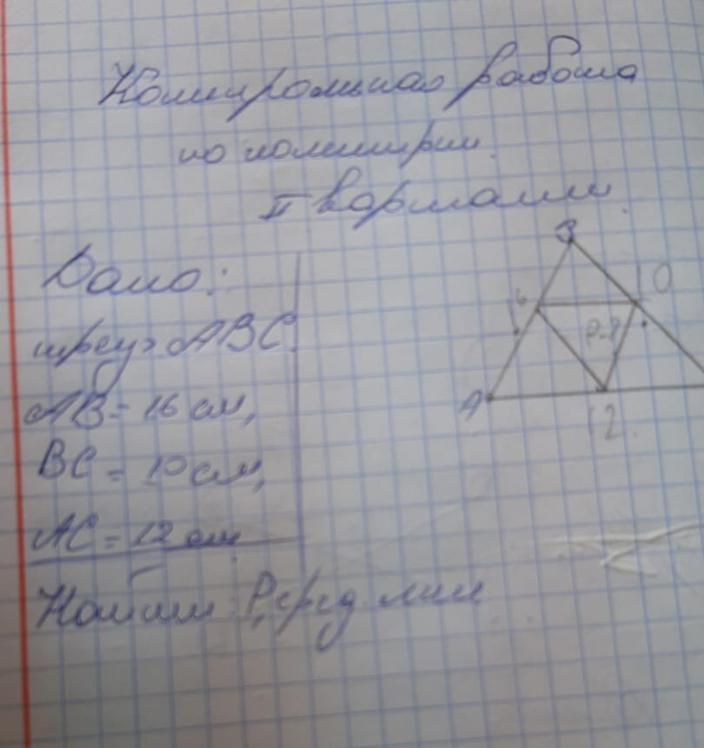 Контрольная работа
по геометрии.
II вариант.
Дано:
треуг ABC.
AB = 16 см,
BC = 10 см,
AC = 12 см
Найти: P, серед лин
B
10
16
P-?
A
12.